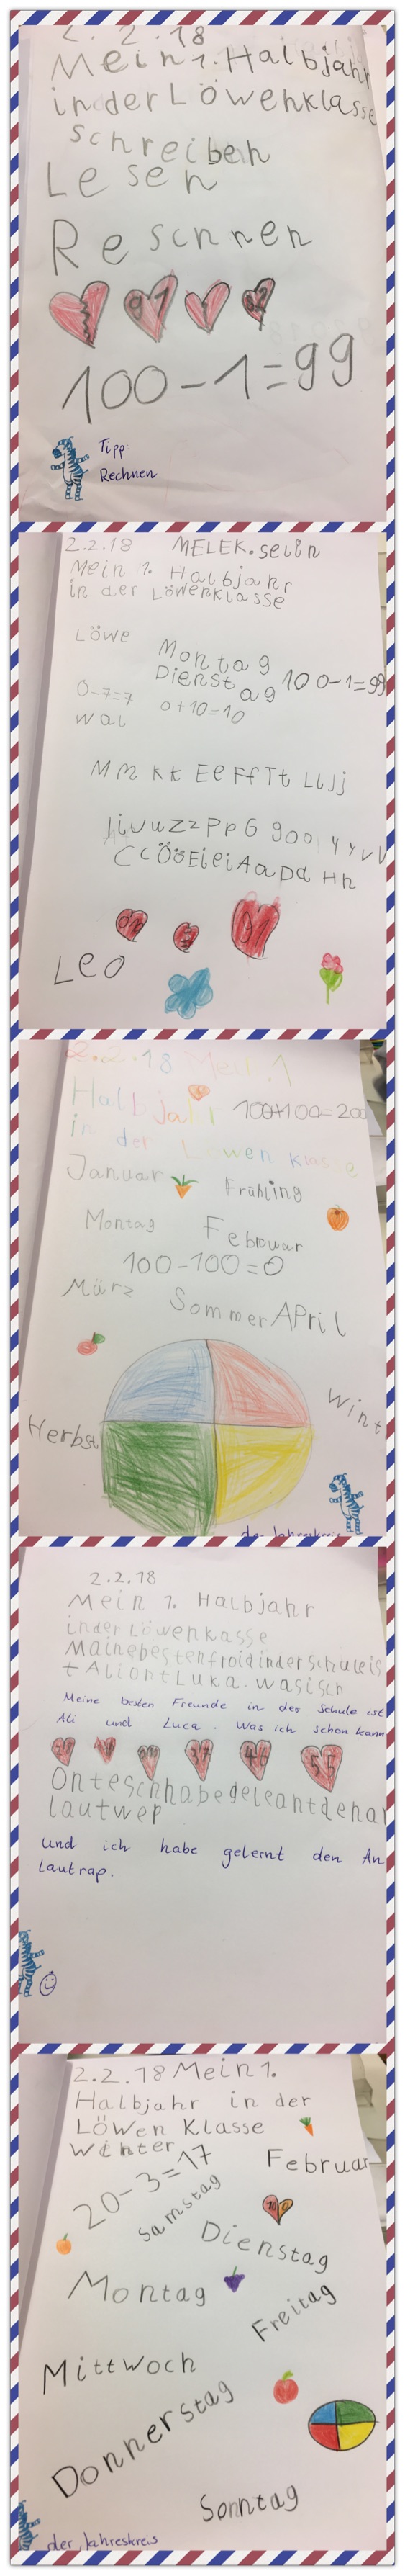 2.2.18
Mein 1. Halbjahr
in der Löwenklasse
schreiben
Lesen
Reschnen
91
100-1=99
Tipp:
Rechnen
2.2.18 MELEK.selin
Mein 1. Halbjahr
in der Löwenklasse
Löwe
Montag
Dienstag
100-1=99
0-7=7
0+10=10
wal
Mm Kk Ee Ff Tt LlJj
IiUuZzPpG gOo YyVv
CcÖöEieiAaDd Hh
Leo
2.2.18 Mein 1
Halbjahr 100+100=200
in der Löwen Klasse
Januar Frühling
Montag Februar
100-100=0
März Sommer APril
Herbst Wint
der Jahreskreis
2.2.18
Mein 1. Halbjahr
inderLöwenkasse
MainebestenfroidinderSchuleis
tAliontLuka.wasisch
Meine besten Freunde in der Schule ist
Ali und Luca. Was ich schon kann
37 46 55
Onteschhabegeleantdenan
lautwep
und ich habe gelernt den An
lautrap.
2.2.18 Mein 1.
Halbjahr in der
Löwen Klasse
Winter
Februar
20-3=17
Samstag
Dienstag
Montag
Freitag
Mittwoch
Donnerstag
Sonntag
der Jahreskreis